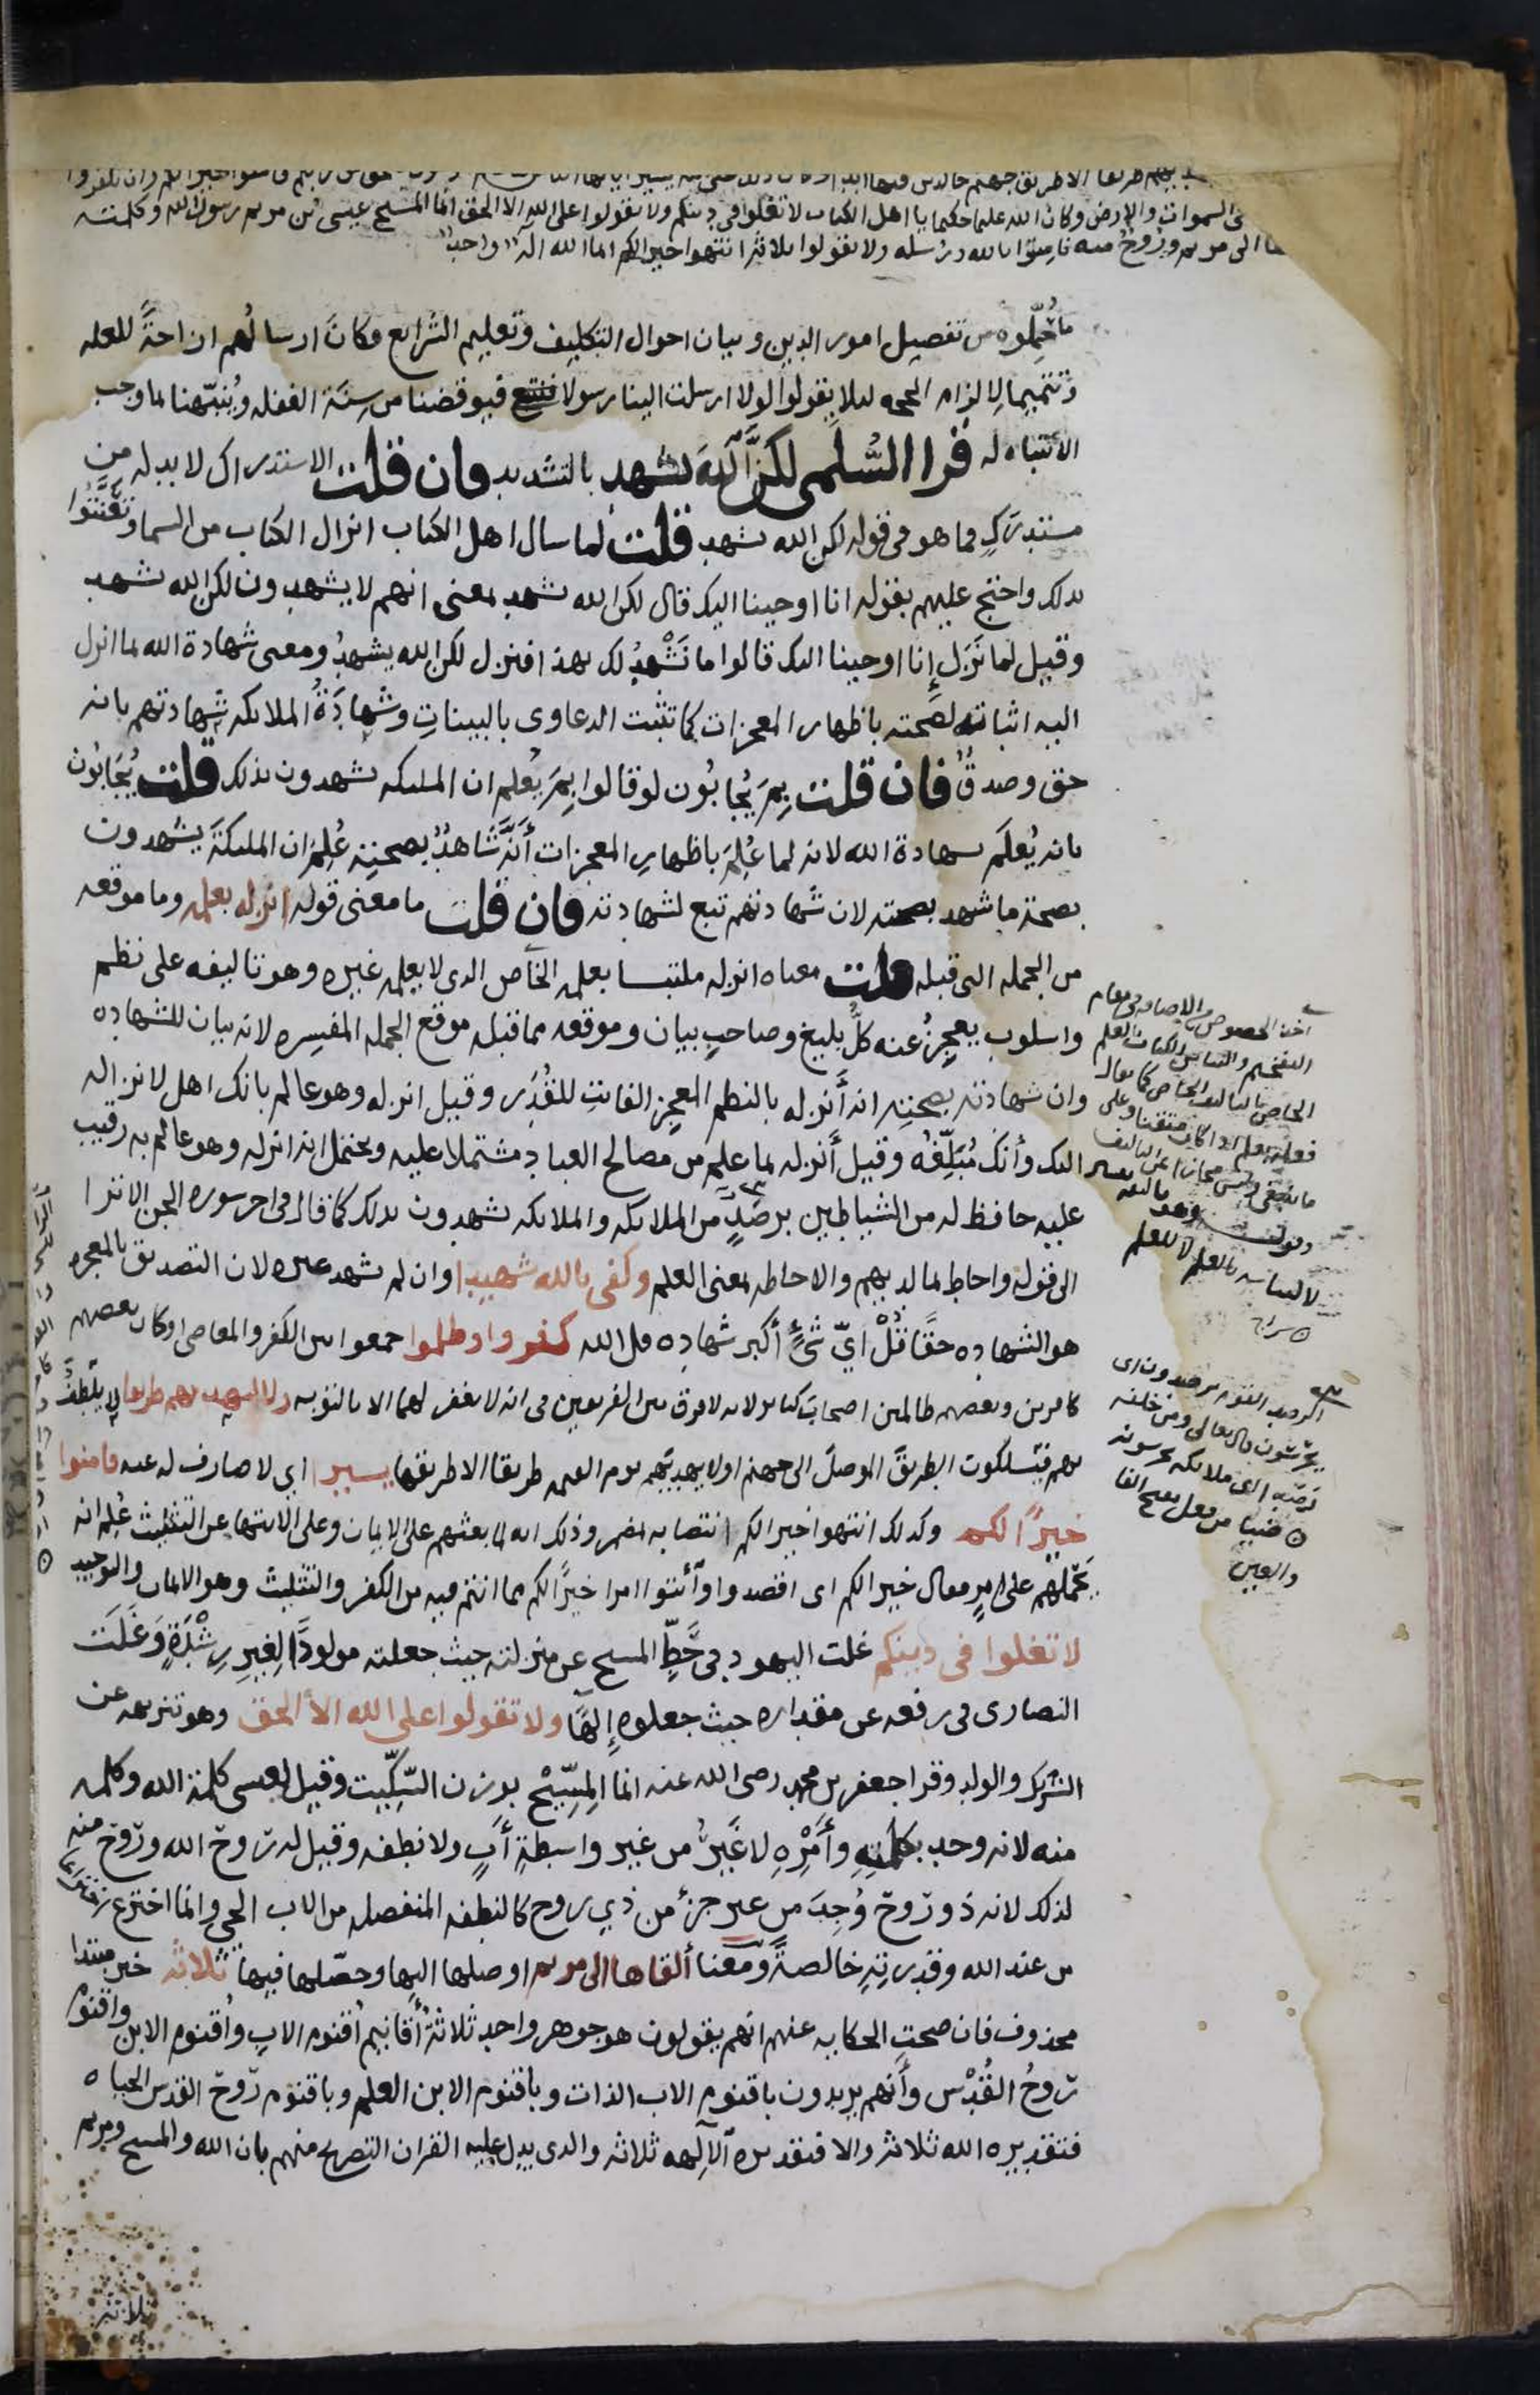 طريقا الا طريق جهنم خالدين فيها ابدا وكان ذلك على الله يسيرا يا ايها الناس
السموات والارض وكان الله عليما حكيما يا اهل الكتاب لا تغلوا فى دينكم ولا تقولوا على الله الا الحق انما المسيح عيسى بن مريم رسول الله وكلمته
الى مريم وروح منه فامنوا بالله ورسله ولا تقولوا ثلاثة انتهوا خيرا لكم انما الله اله واحد
ما حُمِّلوه من تفصيل امور الدين وبيان احوال التكليف وتعليم الشرايع فكان ارسالُهم ازاحةً للعله
وتتميما لالزام الحجه ليلا يقولوا لولا ارسلت الينا رسولا فيوقضنا من سِنَة الغفله ويُنبّهنا لما وجب
الانتباه له قرا السُّلَمى لكنَّ اللهَ يشهد بالتشديد فان قلت الاستدراك لا بد له من
مستدرَكٍ فما هو فى قوله لكن الله يشهد قلت لما سال اهل الكتاب انزال الكتاب من السما وتَعَنَّتُوا
بذلك واحتج عليهم بقوله انا اوحينا اليك قال لكن الله يشهد بمعنى انهم لا يشهدون لكن الله يشهد
وقيل لما نَزَل إنا اوحينا اليك قالوا ما نَشْهدُ لك بهذا فنزل لكن الله يشهدُ ومعنى شهادة الله بما انزل
اليه اثباته لصحته باظهار المعجزات كما تثبت الدعاوى بالبيناتِ وشهادَةُ الملايكه شهادتهم بانه
حق وصدقٌ فان قلت بِمَ يُجابُون لو قالوا بِمَ يُعلم ان المليكه يشهدون بذلك قلت يُجَابُون
بانه يُعلَم بشهادة الله لانه لما عُلِمَ باظهارِ المعجزات أنَّه شَاهدٌ بصحتِه عُلِمَ ان المليكةَ يشهدون
بصحة ما شهد بصحته لان شهادتهم تبع لشهادته فان قلت ما معنى قوله انزله بعلمه وما موقعه
من الجمله التى قبله قلت معناه انزله ملتبسا بعلمه الخاص الذى لا يعلمه غيره وهو تاليفه على نظم
واسلوب يعجِزُ عنه كلُّ بليغ وصاحبِ بيان وموقعه مما قبله موقع الجمله المفسِره لانه بيان للشهاده
وان شهادته بصحتِه انه أَنزله بالنظم المعجِز الفائتِ للقُدَر وقيل انزله وهو عالم بانك اهل لانزاله
اليك وأنك مُبَلِّغُه وقيل أَنزله بما علم من مصالح العباد مشتملا عليه ويحتمل انه انزله وهو عالم به رقيب
عليه حافظ له من الشياطين برصَدٍ من الملايكه والملايكه يشهدون بذلك كما قال فى اخر سوره الجن الا ترا
الى قوله واحاط بما لديهم والاحاطه بمعنى العلم وكفى بالله شهيدا وان لم يشهد غيره لان التصديق بالمعجزه
هو الشهاده حقًا قُلْ اىّ شئٍ أكبر شهاده قل الله كفروا وظلموا جمعوا بين الكفر والمعاصى او كان بعضهم
كافرين وبعضهم ظالمين اصحاب كباير لانه لا فرق بين الفريقين فى انه لا يغفر لهما الا بالتوبه ولا ليهديهم طريقا لا يلطف
بهم فيَسلكون الطريقَ الموصلَ الى جهنم او لا يهديهم يوم القيمه طريقا الا طريقها يسيرا اى لا صارف له عنه فامنوا
خيرًا لكم وكذلك انتهوا خيرا لكم انتصابه بمضمر وذلك انه لما بعثهم على الايمان وعلى الانتها عن التثليث عُلِم انه
يَحْملهم على امرٍ فقال خيرا لكم اى اقصدوا او ائتوا امرا خيرًا لكم مما انتم فيه من الكفر والتثليث وهو الايمان والتوحيد
لا تغلوا فى دينكم غلت اليهود فى حَطِّ المسيح عن منزلته حيث جعلته مولودًا لِغيرِ رِشْدَةٍ وَغَلَت
النصارى فى رفعه عن مقداره حيث جعلوه إلهًا ولا تقولوا على الله الا الحق وهو تنزيهه عن
الشريك والولد وقرا جعفر بن محمد رضى الله عنه انما المِسِّيْحُ بوزن السِّكِّيت وقيل لعيسى كلمة الله وكلمه
منه لانه وجد بكلمتِهِ وأَمْرِهِ لا غَيرُ من غير واسطةِ أبٍ ولا نطفه وقيل له روح الله وروح منه
لذلك لانه ذو روح وُجِدَ من غير جزءٍ من ذي روح كالنطفه المنفصله من الاب الحي وانما اختُرِع اختراعا
من عند الله وقدرتِهِ خالصةً ومعنا ألقاها الى مريم اوصلها اليها وحصّلها فيها ثلاثه خبر مبتدا
محذوف فان صحتِ الحكايه عنهم انهم يقولون هو جوهر واحد ثلاثةُ أَقانيم أُقنوم الابِ وأُقنوم الابن واقنوم
رُوحُ القُدُس وأَنهم يريدون باقنوم الاب الذات وباقنوم الابن العلم وباقنوم روح القدس الحياه
فتقديره الله ثلاثة والا فتقديره الآلهه ثلاثه والذى يدل عليه القران التصريح منهم بان الله والمسيح ومريم
ثلاثة
الخاص بالتاليف الخاص كما يقال
لا التباسه بالعلم لا للعلم
الرصد القوم يرصدون اى
يحرسون قال تعالى ومن خلفه
رَصَدًا اى ملائكه يحرسونه
والعين